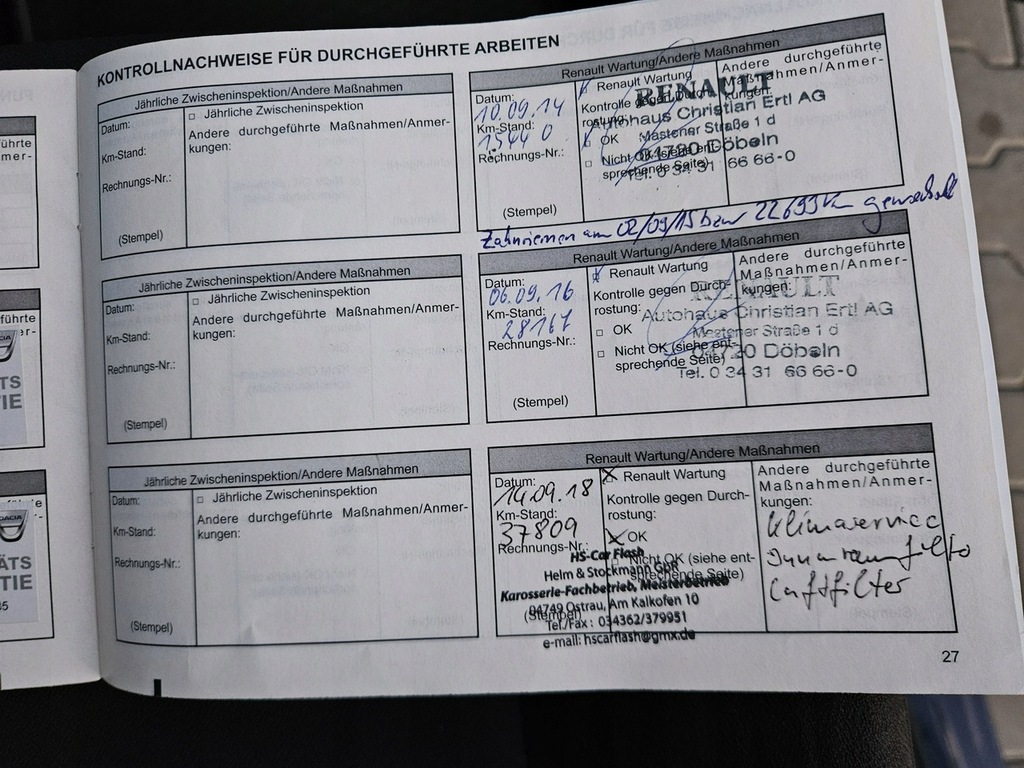 KONTROLLNACHWEISE FÜR DURCHGEFÜHRTE ARBEITEN
Jährliche Zwischeninspektion/Andere Maßnahmen
Datum:
Km-Stand:
Rechnungs-Nr.:
(Stempel)
□ Jährliche Zwischeninspektion
Andere durchgeführte Maßnahmen/Anmer-
kungen:
Renault Wartung/Andere Maßnahmen
Datum:
10.09.14
Km-Stand:
15440
Rechnungs-Nr.:
(Stempel)
Renault Wartung
Kontrolle gegen Durch-
rostung:
OK
□ Nicht OK (siehe ent-
sprechende Seite)
Andere durchgeführte
Maßnahmen/Anmer-
kungen:
RENAULT
Autohaus Christian Ertl AG
Mastener Straße 1 d
04720 Döbeln
Tel. 0 34 31 66 66-0
Zahnriemen am 02/09/15 bzw 22693 Km gewechselt
Jährliche Zwischeninspektion/Andere Maßnahmen
Datum:
Km-Stand:
Rechnungs-Nr.:
(Stempel)
□ Jährliche Zwischeninspektion
Andere durchgeführte Maßnahmen/Anmer-
kungen:
Renault Wartung/Andere Maßnahmen
Datum:
06.09.16
Km-Stand:
28167
Rechnungs-Nr.:
(Stempel)
Renault Wartung
Kontrolle gegen Durch-
rostung:
□ OK
□ Nicht OK (siehe ent-
sprechende Seite)
Andere durchgeführte
Maßnahmen/Anmer-
kungen:
RENAULT
Autohaus Christian Ertl AG
Mastener Straße 1 d
04720 Döbeln
Tel. 0 34 31 66 66-0
Jährliche Zwischeninspektion/Andere Maßnahmen
Datum:
Km-Stand:
Rechnungs-Nr.:
(Stempel)
□ Jährliche Zwischeninspektion
Andere durchgeführte Maßnahmen/Anmer-
kungen:
Renault Wartung/Andere Maßnahmen
Datum:
14.09.18
Km-Stand:
37809
Rechnungs-Nr.:
(Stempel)
Renault Wartung
Kontrolle gegen Durch-
rostung:
OK
Nicht OK (siehe ent-
sprechende Seite)
Andere durchgeführte
Maßnahmen/Anmer-
kungen:
Klimaservice
Innenraumfilter
Luftfilter
HS-Car Flash
Helm & Stockmann GbR
Karosserie-Fachbetrieb, Meisterbetrieb
04749 Ostrau, Am Kalkofen 10
Tel./Fax: 034362/379951
e-mail: hscarflash@gmx.de
27